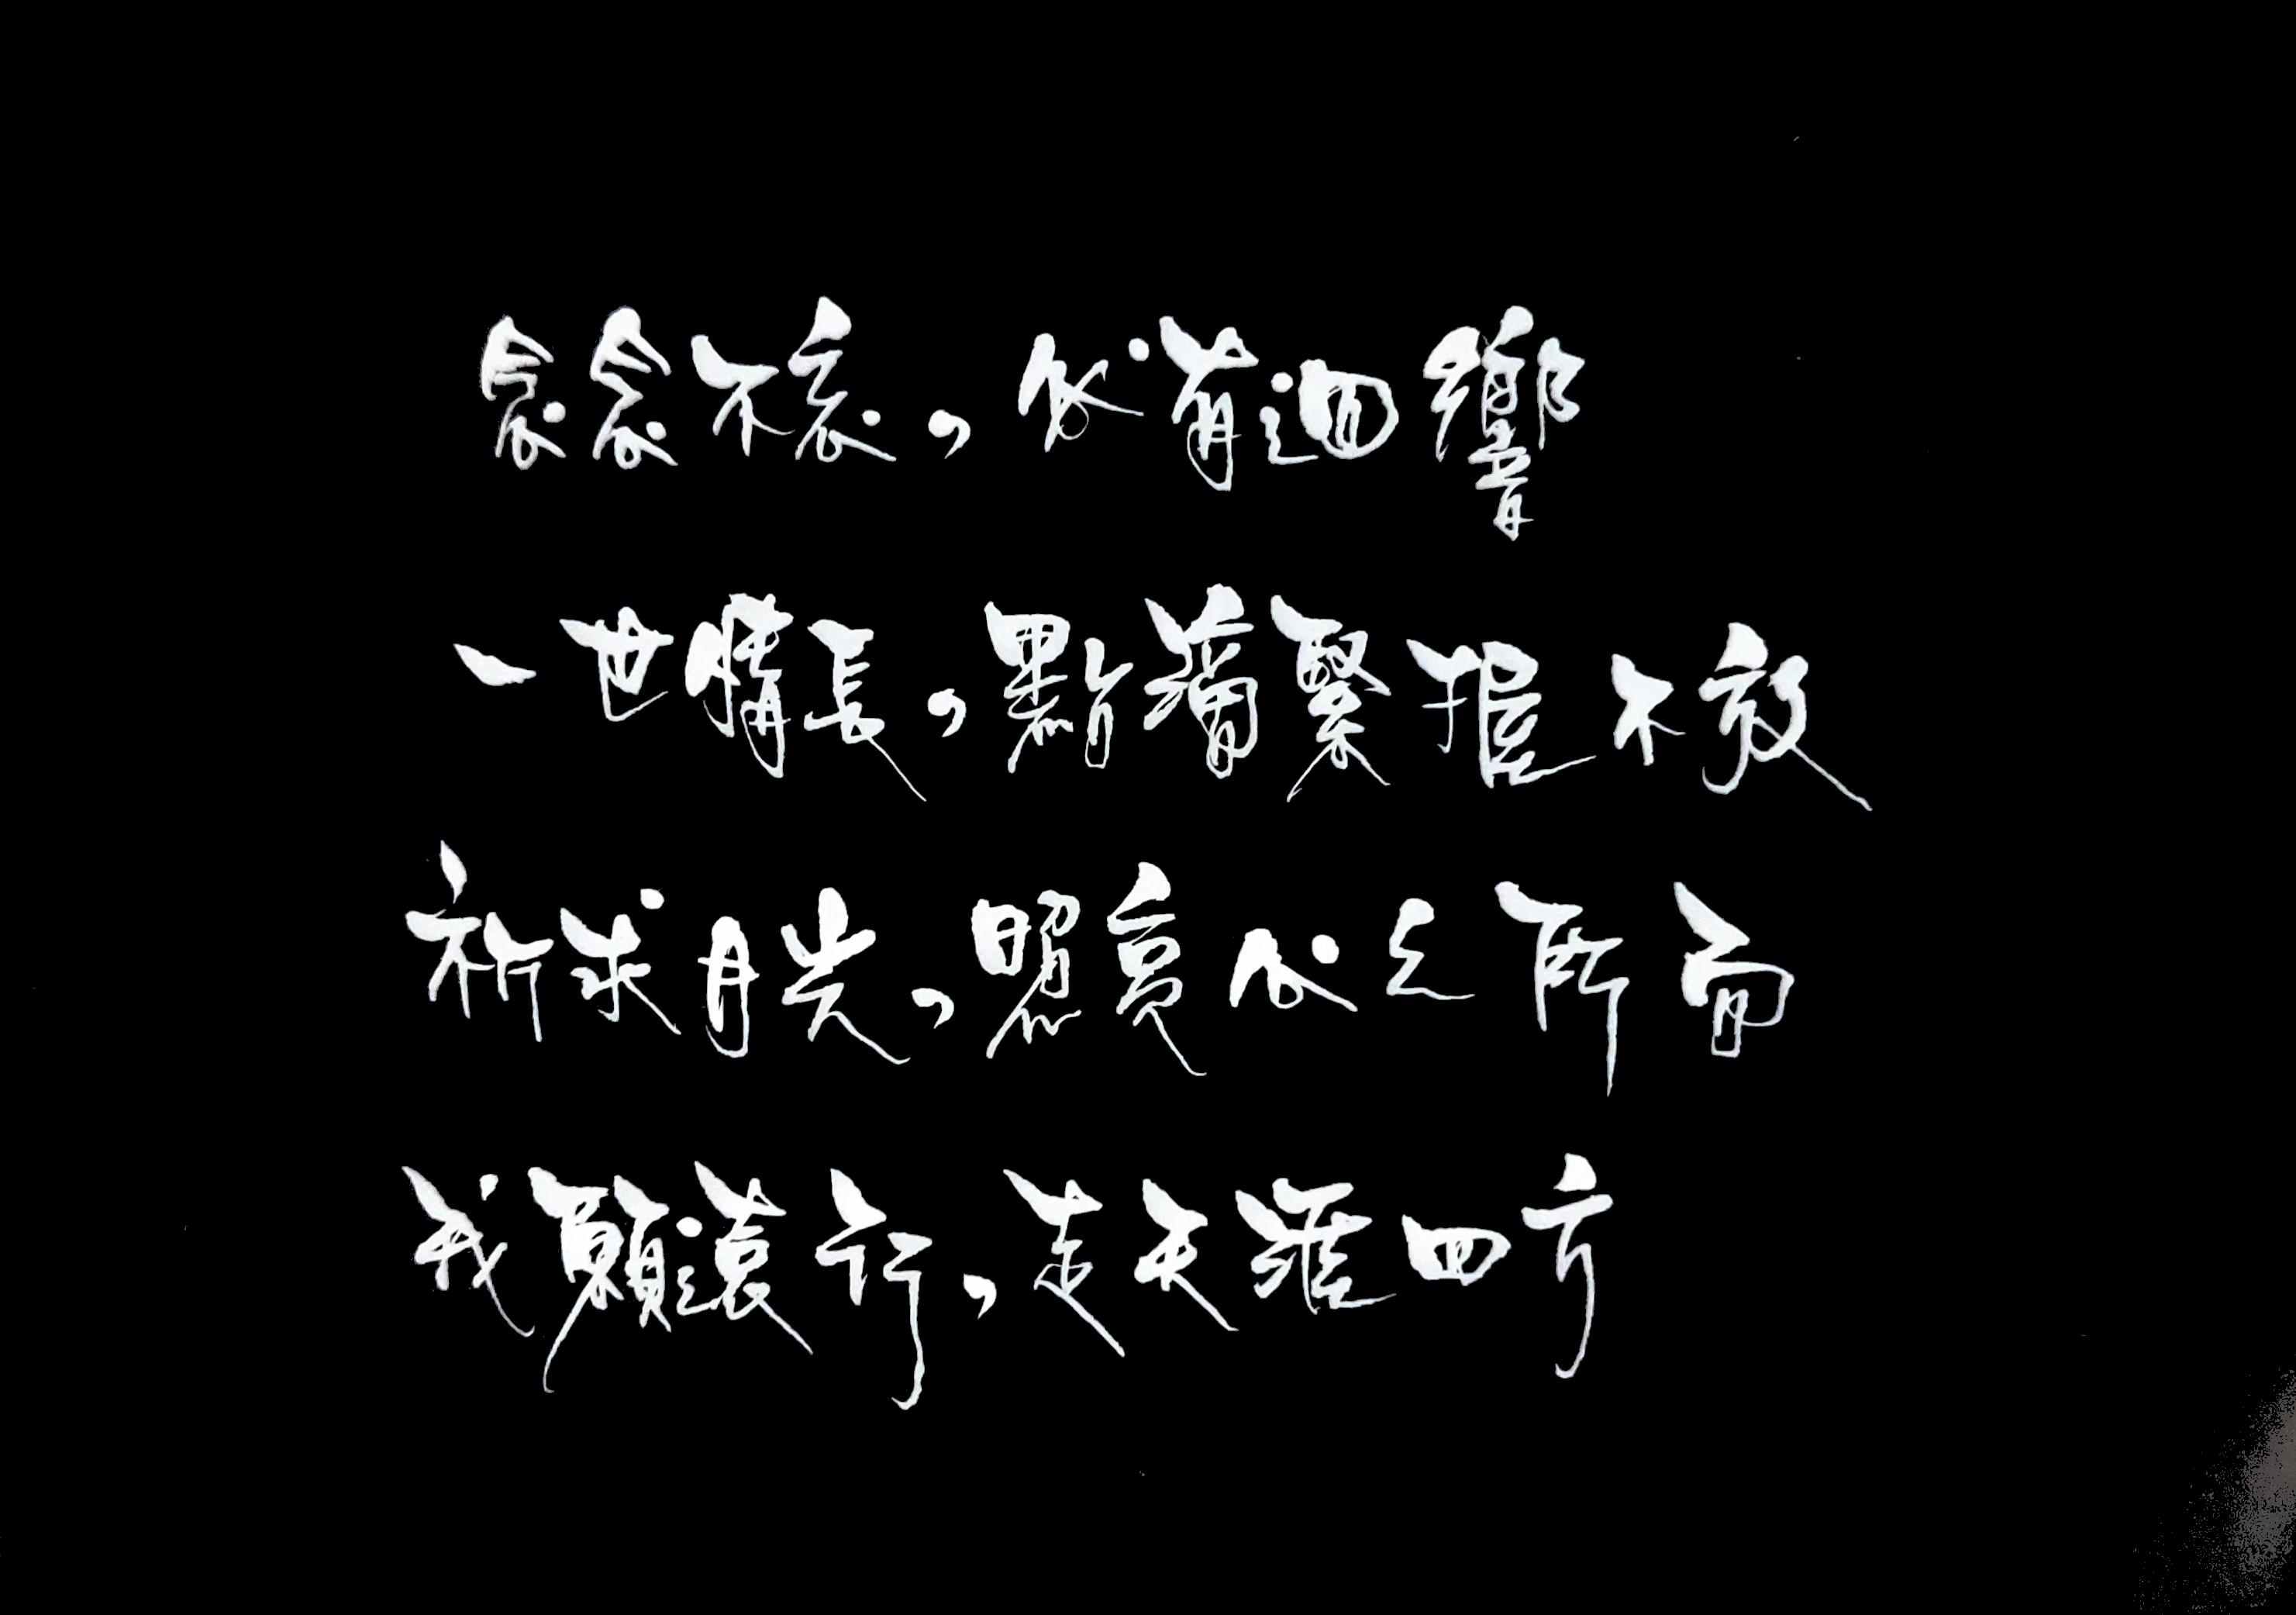 念念不忘,必有迴響
一世情長,點滴緊握不放
祈求月光,照亮心之所向
我願遠行,走天涯四方